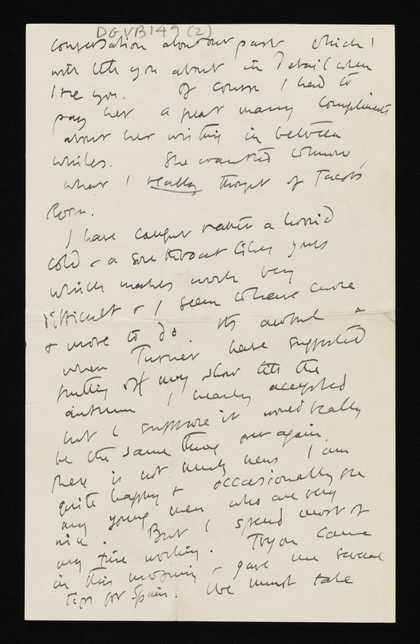 DGVB149 (2)
conversation about our past which I
will tell you about in detail when
I see you. Of course I had to
pay her a great many compliments
about her writing in between
whiles. She wanted to know
what I really thought of Jacobs
Room.
I have caught rather a horrid
cold & a sore throat like yours
which makes work very
difficult & I seem to have more
& more to do. Its awful &
when Turner have suggested
putting off my show till the
autumn I nearly accepted
but I suppose it would really
be the same thing over again.
There is not much news I am
quite happy & occasionally see
my young men who are very
nice. But I spend most of
my time working. Tryon came
in this morning & gave me several
tips for Spain. We must take